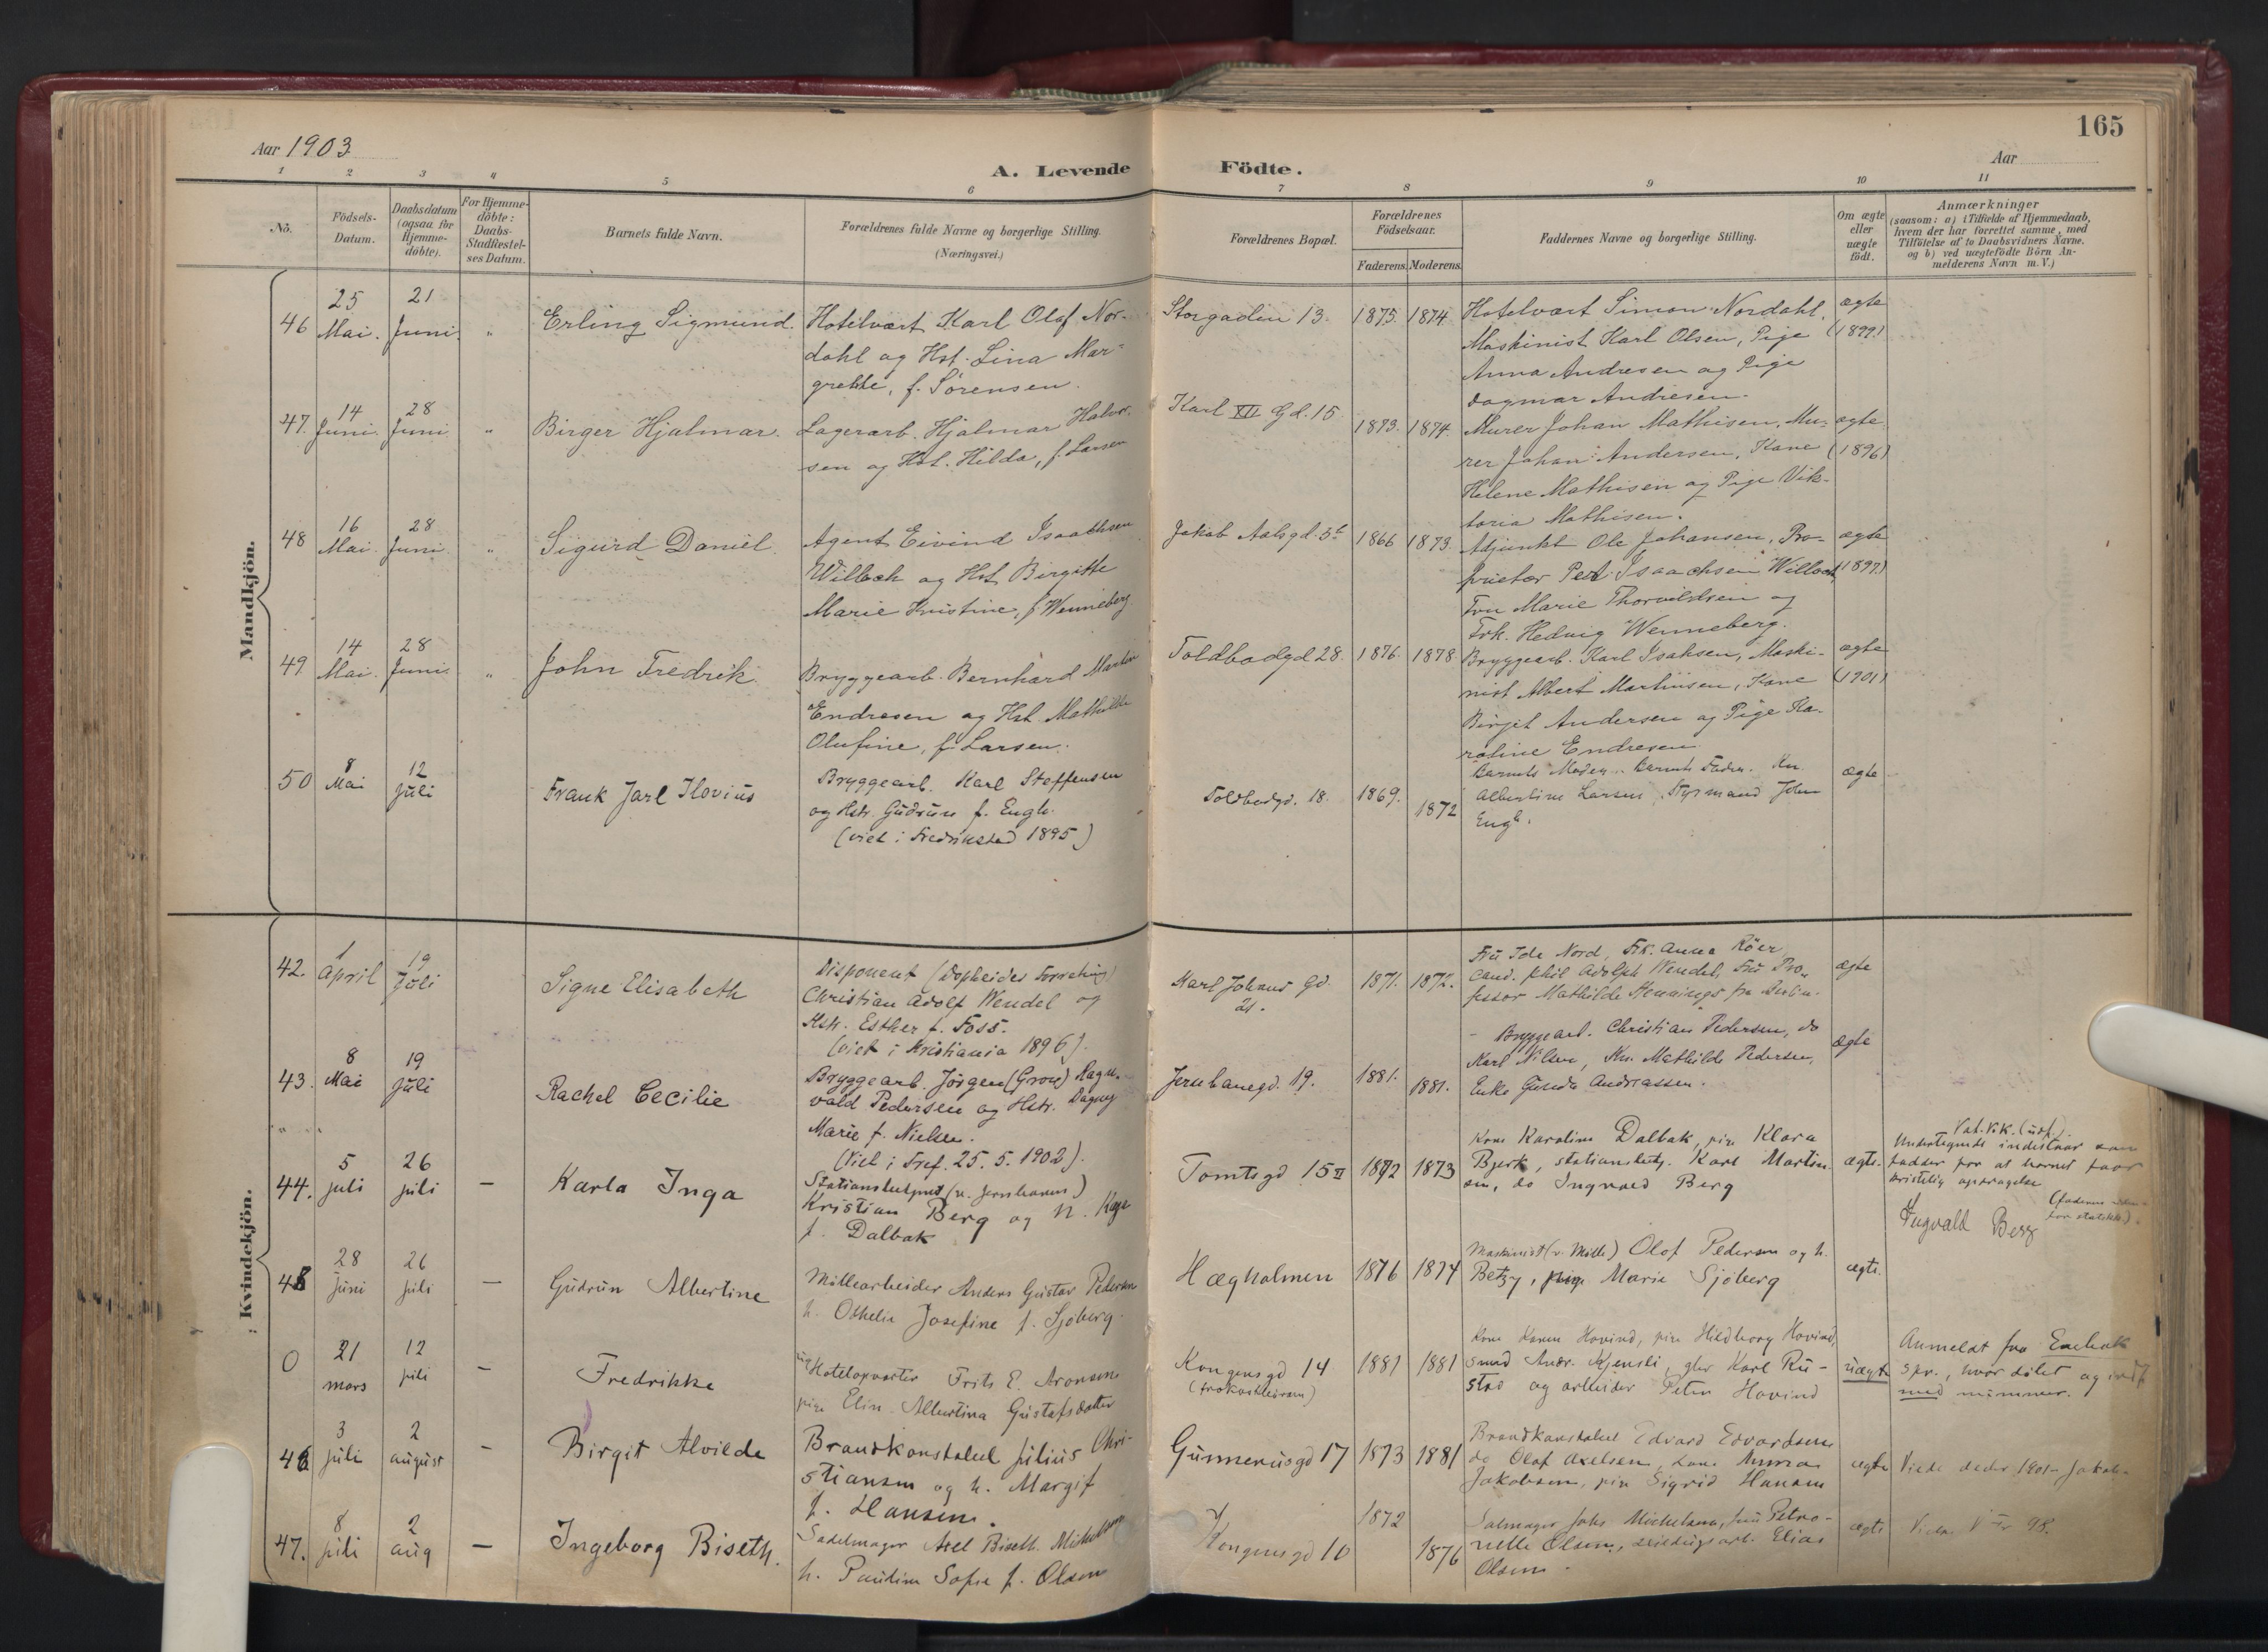 165
Aar 1903
Aar
A. Levende Födte.
1 2 3 4 5 6 7 8 9 10 11
No.
Födsels-
Datum.
Daabsdatum
(ogsaa for
Hjemme-
döbte).
For Hjemme-
döbte:
Daabs-
Stadfæstel-
ses Datum.
Barnets fulde Navn.
Forældrenes fulde Navne og borgerlige Stilling.
(Næringsvei.)
Forældrenes Bopæl.
Forældrenes
Födselsaar.
Faderens. Moderens.
Faddernes Navne og borgerlige Stilling.
Om ægte
eller
uægte
födt.
Anmærkninger
(saasom: a) i Tilfælde af Hjemmedaab,
hvem der har forrettet samme, med
Tilföielse af to Daabsvidners Navne.
og b) ved uægtefödte Börn An-
melderens Navn m. V.)
Mandkjön.
46
25
Mai.
21
Juni.
"
Erling Sigmund.
Hotelvært Karl Olaf Nor-
dahl og Hst. Lina Mar-
grethe, f. Sørensen.
Storgaden 13.
1875. 1874
Hotelvært Simon Nordahl,
Maskinist Karl Olsen, Pige
Anna Andresen og Pige
Dagmar Andresen.
ægte
(1899.)
47.
14
Juni.
28
Juni
"
Birger Hjalmar.
Lagerarb. Hjalmar Halvor-
sen og Hst. Hilda, f. Larsen
Karl XII Gd. 15
1873. 1874.
Murer Johan Mathisen, Mu-
rer Johan Andersen, Kone
Helene Mathisen og Pige Vik-
toria Mathisen.
ægte
(1896)
48
16
Mai.
28
Juni
"
Sigurd Daniel
Agent Eivind Isaachsen
Willoch og Hst Birgitte
Marie Kristine, f Wenneberg.
Jakob Aalsgd.
1866 1873.
Adjunkt Ole Johansen, Pro-
prietær Isaachsen Willoch
Fru Marie Thorvildsen og
Frk. Hedvig Wenneberg.
ægte
(1897)
49
14
Mai.
28
Juni.
"
John Fredrik
Bryggearb. Bernhard Martin
Endresen og Hst. Mathilde
Olufine, f. Larsen.
Toldbodgd 28.
1876. 1878
Bryggearb. Karl Isaksen, Maski-
nist Albert Martinsen, Kone
Birgit Andersen og Pige Ka-
roline Endresen.
ægte
(1901)
50
8
Mai
12
Juli
Frank Jarl
Bryggearb. Karl Steffensen
og Hstr. Gudrun f. Engh.
(viet i Fredrikstad 1895)
Toldbodgd. 18.
1869.
1872
Barnets Moder. Barnets Fader. Kn.
Albertine Larsen, Styrmand John
Engh.
ægte
Kvindekjön.
42.
1
April
19
Juli
Signe Elisabeth
Disponent
Christian Adolf Wendel og
Hstr. Esther f. Foss.
(viet i Kristiania 1896).
Karl Johans Gd.
21.
1871. 1872.
Fru Ida Nord, Frk. Anna Röer
cand. phil Adolph Wendel, Fru Pro-
fessor Mathilde Hennings fra Berlin.
ægte
43.
8
Mai
19
Juli
Rachel Cecilie
Bryggearb. Jörgen Ragn-
vald Pedersen og Hstr. Dagny
Marie f. Nielsen.
(Viet i Fref. 25. 5. 1902).
Jernbanegd. 19.
1881.
1881.
Bryggearb. Christian Pedersen, do
Karl Nilsen, Kn. Mathilde Pedersen,
Enke Gunda Andreassen.
ægte
44.
5
juli
26
juli
—
Karla Inga
Kristian Berg og h. Kaja
f. Dalbak
Tomtegd 15 II
1872 1873
Kone Karoline Dalbak, pike Klara
Bjerk, stationsbetj. Karl Martin-
sen, do Ingvald Berg
ægte.
Undertegnede indestaar som
fadder for at barnet faar
kristelig opdragelse
Ingvald Berg
45
28
Juni
26
juli
—
Gudrun Albertine
Møllearbeider Anders Gustav Pedersen
h. Othelie Josefine f. Sjöberg.
Hægholmen
1876 1874
Maskinist (v. Mölle) Olof Pedersen og h.
Betzy, Marie Sjöberg
ægte.
0
21
mars
12
juli
—
Fredrikke
Hotelopvarter Frits E. Aronsen
pige Elin Albertina Gustafsdotter
Kongensgd 14
1881 1881
Kone Karen Hovind, pige Hildborg Hovind,
smed Andr. Kjensli, glm Karl Ru-
stad og arbeider Peter Hovind
uægte
Anmeldt fra Enebak
spr., hvor döbt og indf
med nummer.
46
3
juli
2
august
—
Birgit Alvilde
Brandkonstabel Julius Chri-
stiansen og h. Margit
f. Hansen.
Gunnerusgd 17
1873 1881
Brandkonstabel Edvard Edvardsen
do Olaf Axelsen, Kone Anna
Jakobsen, pige Sigrid Hansen
ægte
47.
8
juli
2
aug
—
Ingeborg Biseth.
Sadelmager Axel Biseth Mickelsen
h. Pauline Sofie f. Olsen
Kongensgd 10
1872
1876
Salmager Johs Mickelsen, fru Petro-
nelle Olsen, arb. Elias
Olsen.
ægte